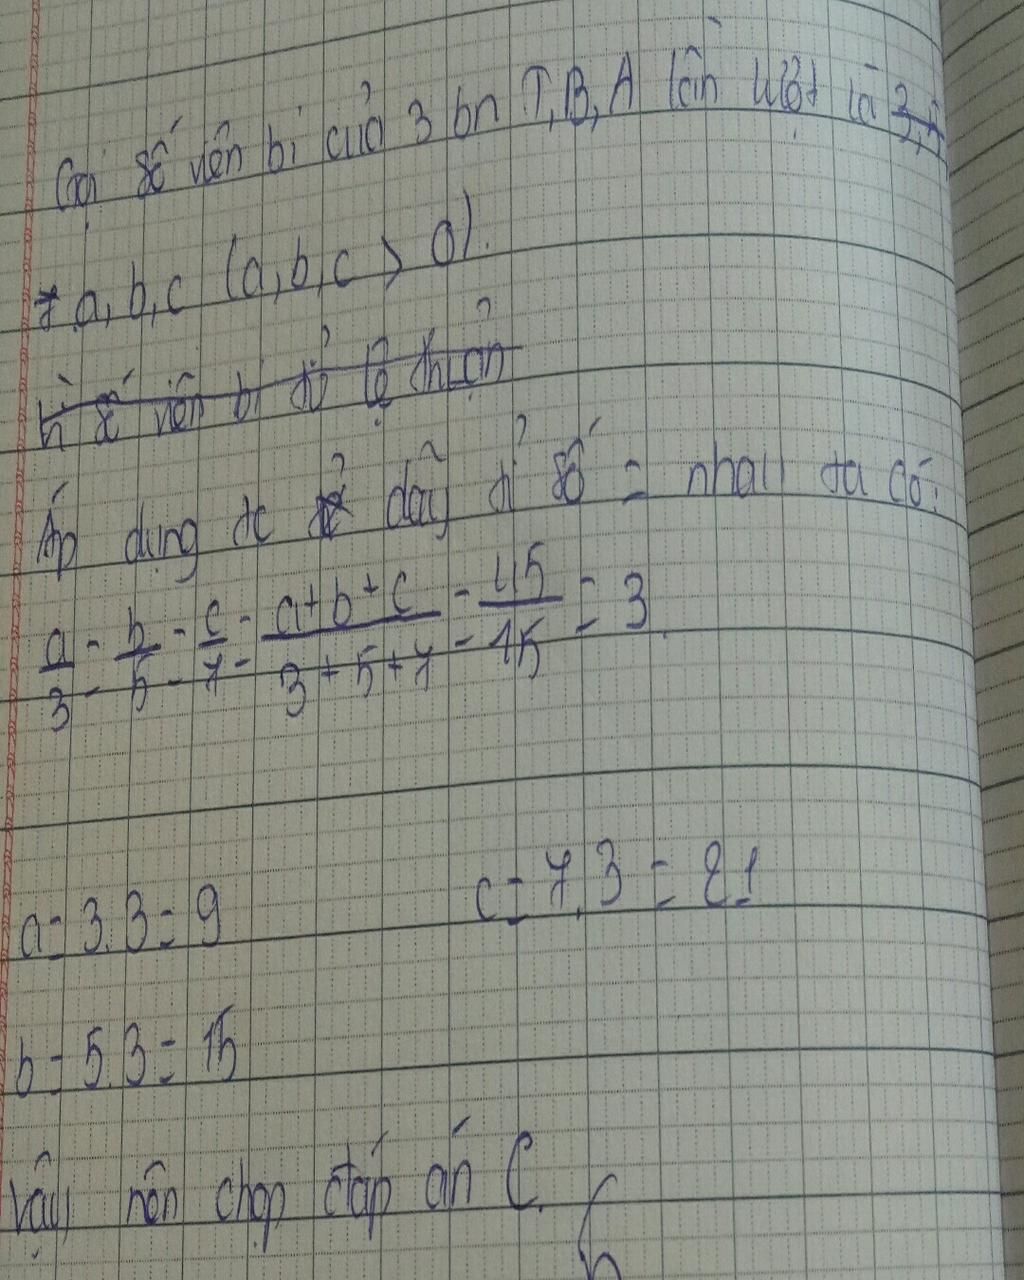 Gọi số viên bi của 3 bn T, B, A lần lượt là 3,
a, b, c (a, b, c > 0).
Vì số viên bi tỉ lệ thuận
Áp dụng tc dãy tỉ số = nhau ta có:
a/3 = b/5 = c/7 = (a+b+c)/(3+5+7) = 45/15 = 3
a = 3.3 = 9 c = 7.3 = 21
b = 5.3 = 15
Vậy nên chọn đáp án C.